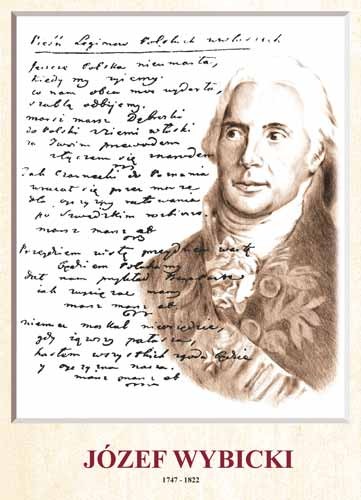 Pieśń Legionów Polskich we Włoszech
Jeszcze Polska nieumarła,
kiedy my żyjemy.
co nam obca moc wydarła,
szablą odbijemy.
marsz marsz Dąbrski
do Polski z ziemi włoski
za Twoim przewodem
złączem się z narodem
Jak Czarnecki do Poznania
wracał się przez morze
dla ojczyzny ratowania
po Szwedzkim rozbiorze.
marsz marsz
Przejdziem Wisłę przejdziem Wartę
Będziem Polakami
dał nam przykład Bonaparte
jak zwyciężać mamy
marsz marsz
niemiec moskal nieosiędzie,
gdy jąwszy pałasza,
hasłem wszystkich zgoda będzie
y ojczyzna nasza.
marsz marsz
JÓZEF WYBICKI
1747 - 1822